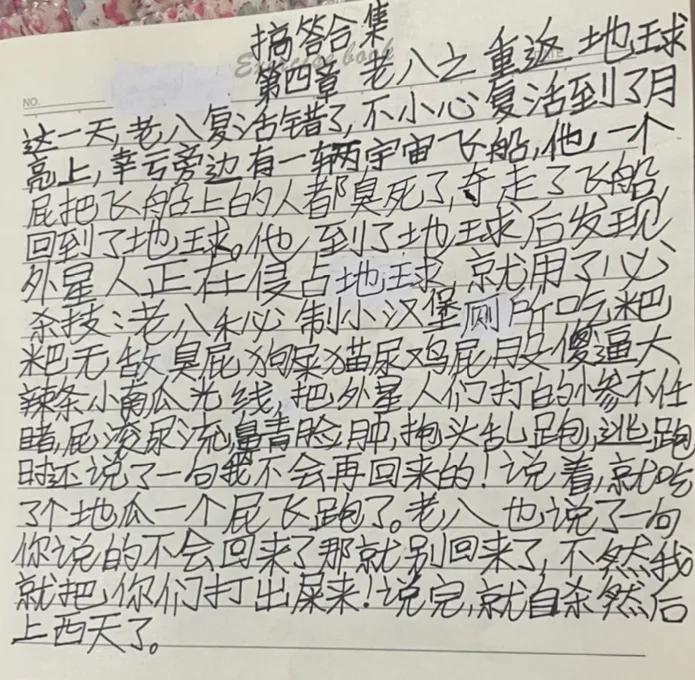 搞答合集
Exercise book
第四章 老八之重返地球
NO.
这一天,老八复活错了,不小心复活到了月
亮上,幸亏旁边有一辆宇宙飞船,他一个
屁把飞船上的人都臭死了,夺走了飞船,
回到了地球。他到了地球后发现
外星人正在侵占地球,就用了必
杀技:老八秘制小汉堡厕所吃粑
粑无敌臭屁狗屎猫尿鸡屁股傻逼大
辣条小南瓜光线,把外星人们打的惨不任
睹,屁滚尿流,鼻青脸肿,抱头乱跑,逃跑
时还说了一句我不会再回来的!说着,就吃
了个地瓜一个屁飞跑了。老八也说了一句
你说的不会回来了那就别回来了,不然我
就把你们打出屎来!说完,就自杀然后
上西天了。